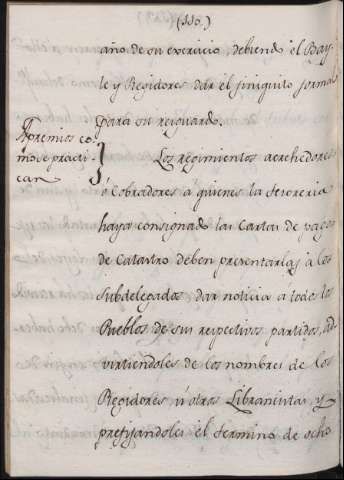 (110.)
año de su exercicio, debiendo el Bay-
le y Regidores dar el finiquito formal
para su resguardo.
Apremios co-
mo se practi-
can
Los regimientos acrehedores
o Cobradores à quienes la Tesoreria
haya consignado las Cartas de pago
de Catastro deben presentarlas à los
Subdelegados dar noticia à todos los
Pueblos de sus respectivos partidos, ad
virtiendoles de los nombres de los
Regidores, ù otros Libramistas, y
prefijandoles el termino de ocho